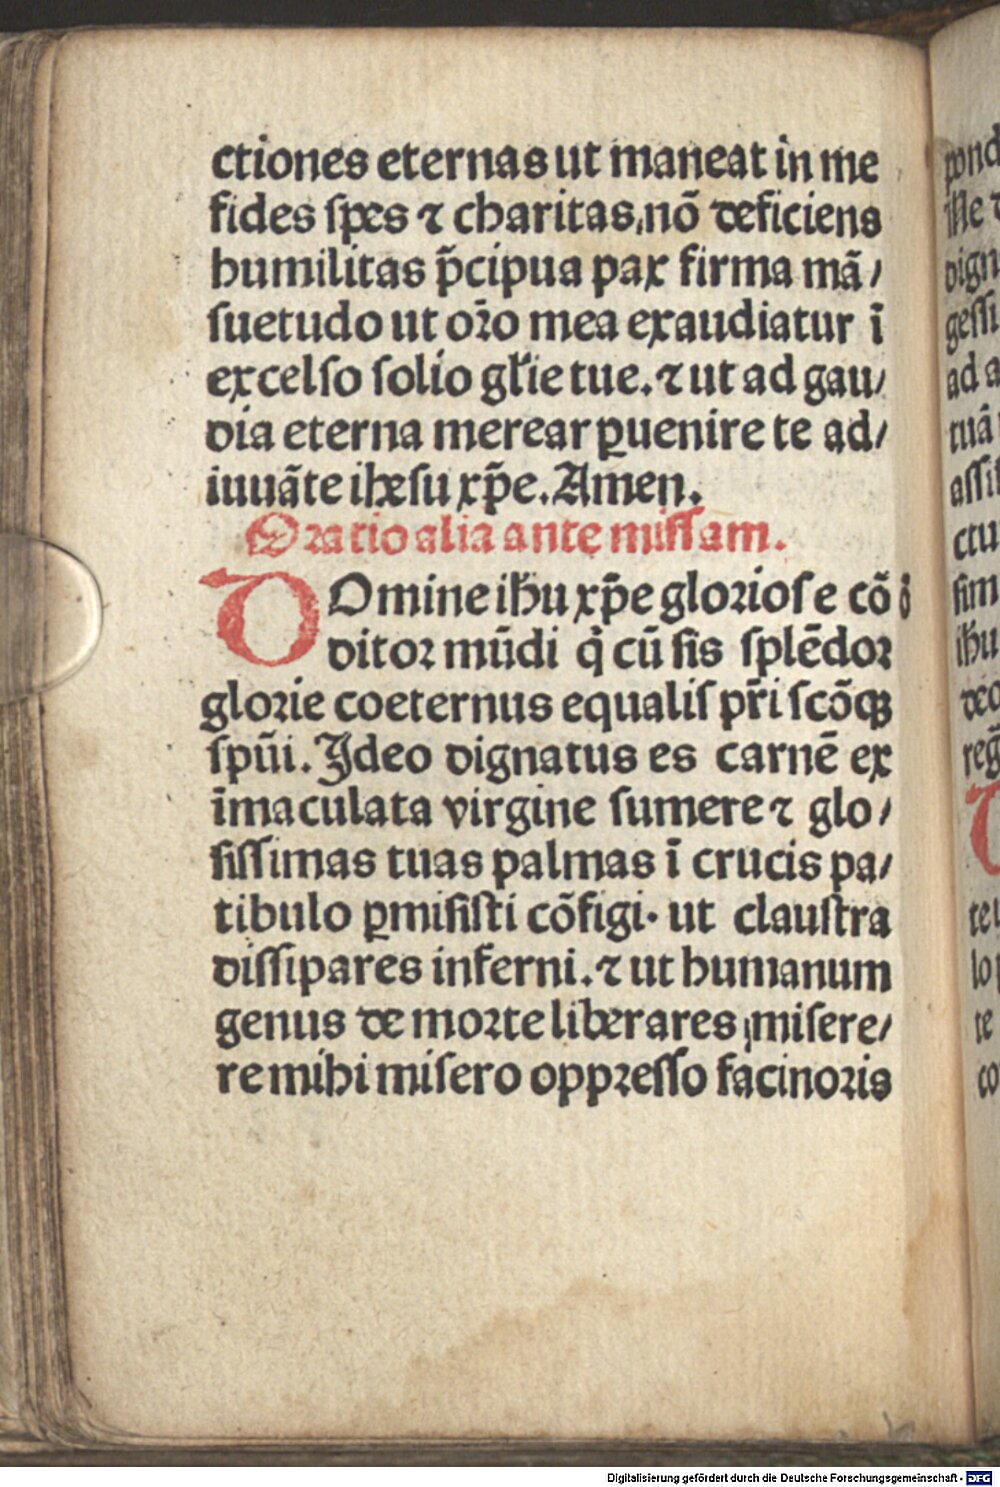 ctiones eternas ut maneat in me
fides ſpes ⁊ charitas, nō deficiens
humilitas p̄cipua pax firma mā/
ſuetudo ut oꝛ̄o mea exaudiatur ī
excelſo ſolio gl̄ie tue. ⁊ ut ad gau/
dia eterna merear ꝑuenire te ad/
iuuāte iheſu xp̄e. Amen.
Oꝛatio alia ante miſſam.
DOmine ih̄u xp̄e gloꝛioſe cō
ditoꝛ mūdi q̇ cū ſis ſplēdoꝛ
gloꝛie coeternus equaliſ pr̄i ſcōqꝫ
ſpūi. Ideo dignatus es carnē ex
īmaculata virgine ſumere ⁊ glo/
ſiſſimas tuas palmas ī crucis pa/
tibulo ꝑmiſiſti cōfigi· ut clauſtra
diſſipares inferni. ⁊ ut humanum
genus de moꝛte liberares, miſere/
re mihi miſero oppꝛeſſo facinoꝛis
dign
geſſi
ad a
tuā
ctu
ſim
ih̄u
Digitalisierung gefördert durch die Deutsche Forschungsgemeinschaft - DFG